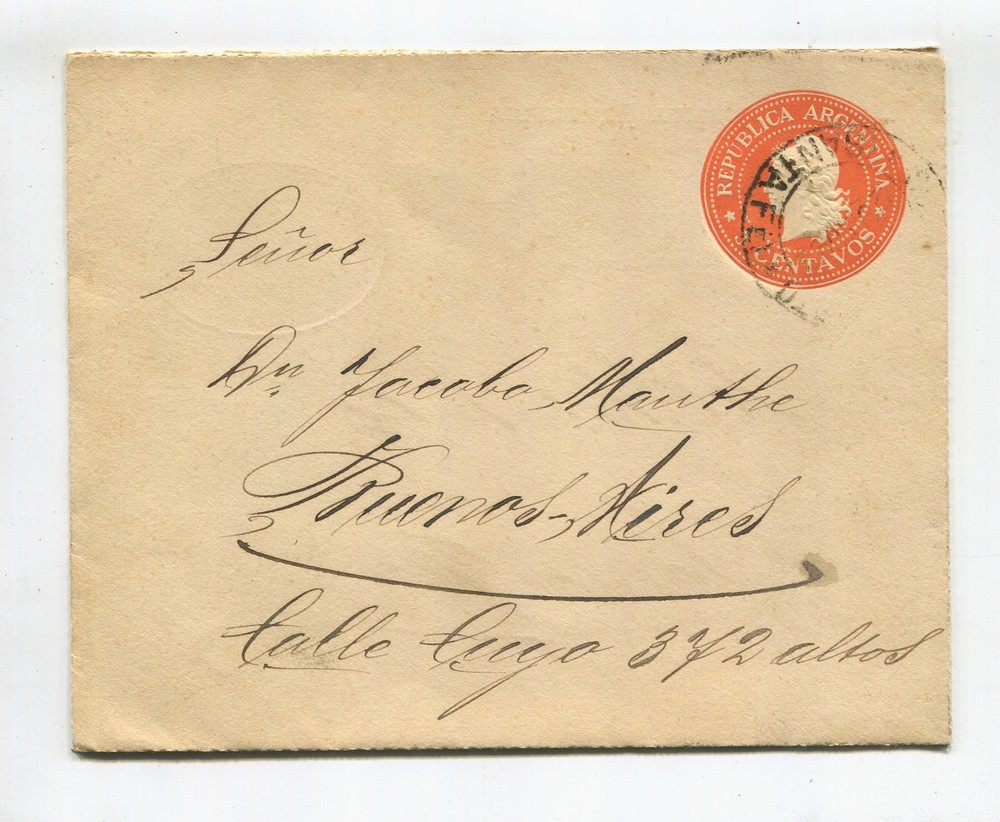 REPUBLICA ARGENTINA
CENTAVOS
SANTA FE
Señor
Dn Jacobo Mauthe
Buenos-Aires
Calle Cuyo 372 altos